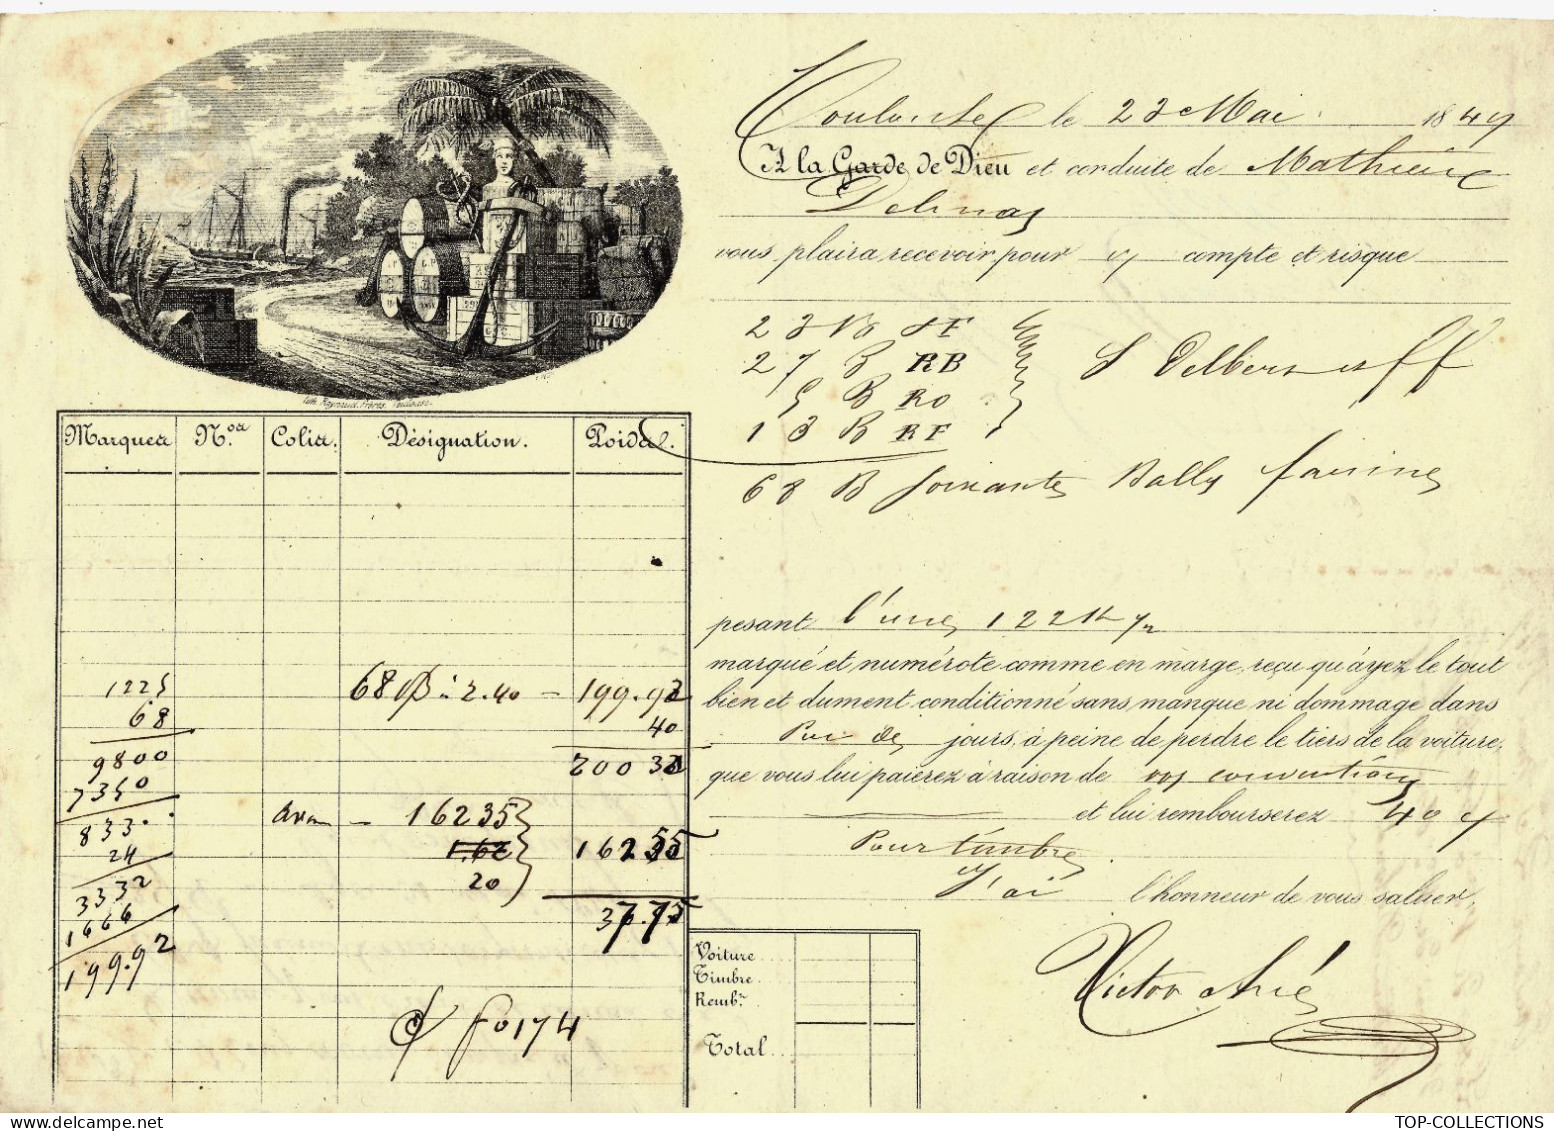 Toulouse le 23 Mai 1849
A la Garde de Dieu et conduite de Mathieu
Delmas
vous plaira recevoir pour compte et risque
27 B RB
5 B RO
13 B RF
68 B Soixante Balles farine
Lith. Raynaud Frères, Toulouse.
Marques Nos Colis. Désignation. Poids.
pesant l'une 122 K
marqué et numéroté comme en marge, reçu qu'ayez le tout
bien et dument conditionné sans manque ni dommage dans
jours, à peine de perdre le tiers de la voiture,
que vous lui paierez à raison de nos conventions
et lui rembourserez 40
Pour timbre
J'ai l'honneur de vous saluer,
Victor
1225
68
9800
7350
833..
24
3332
1666
199.92
68 B à 2.40 — 199.93
40
200 33
16235
1.62
20
16255
37.75
fo 174
Voiture....
Timbre....
Rembt.
Total...
TOP-COLLECTIONS